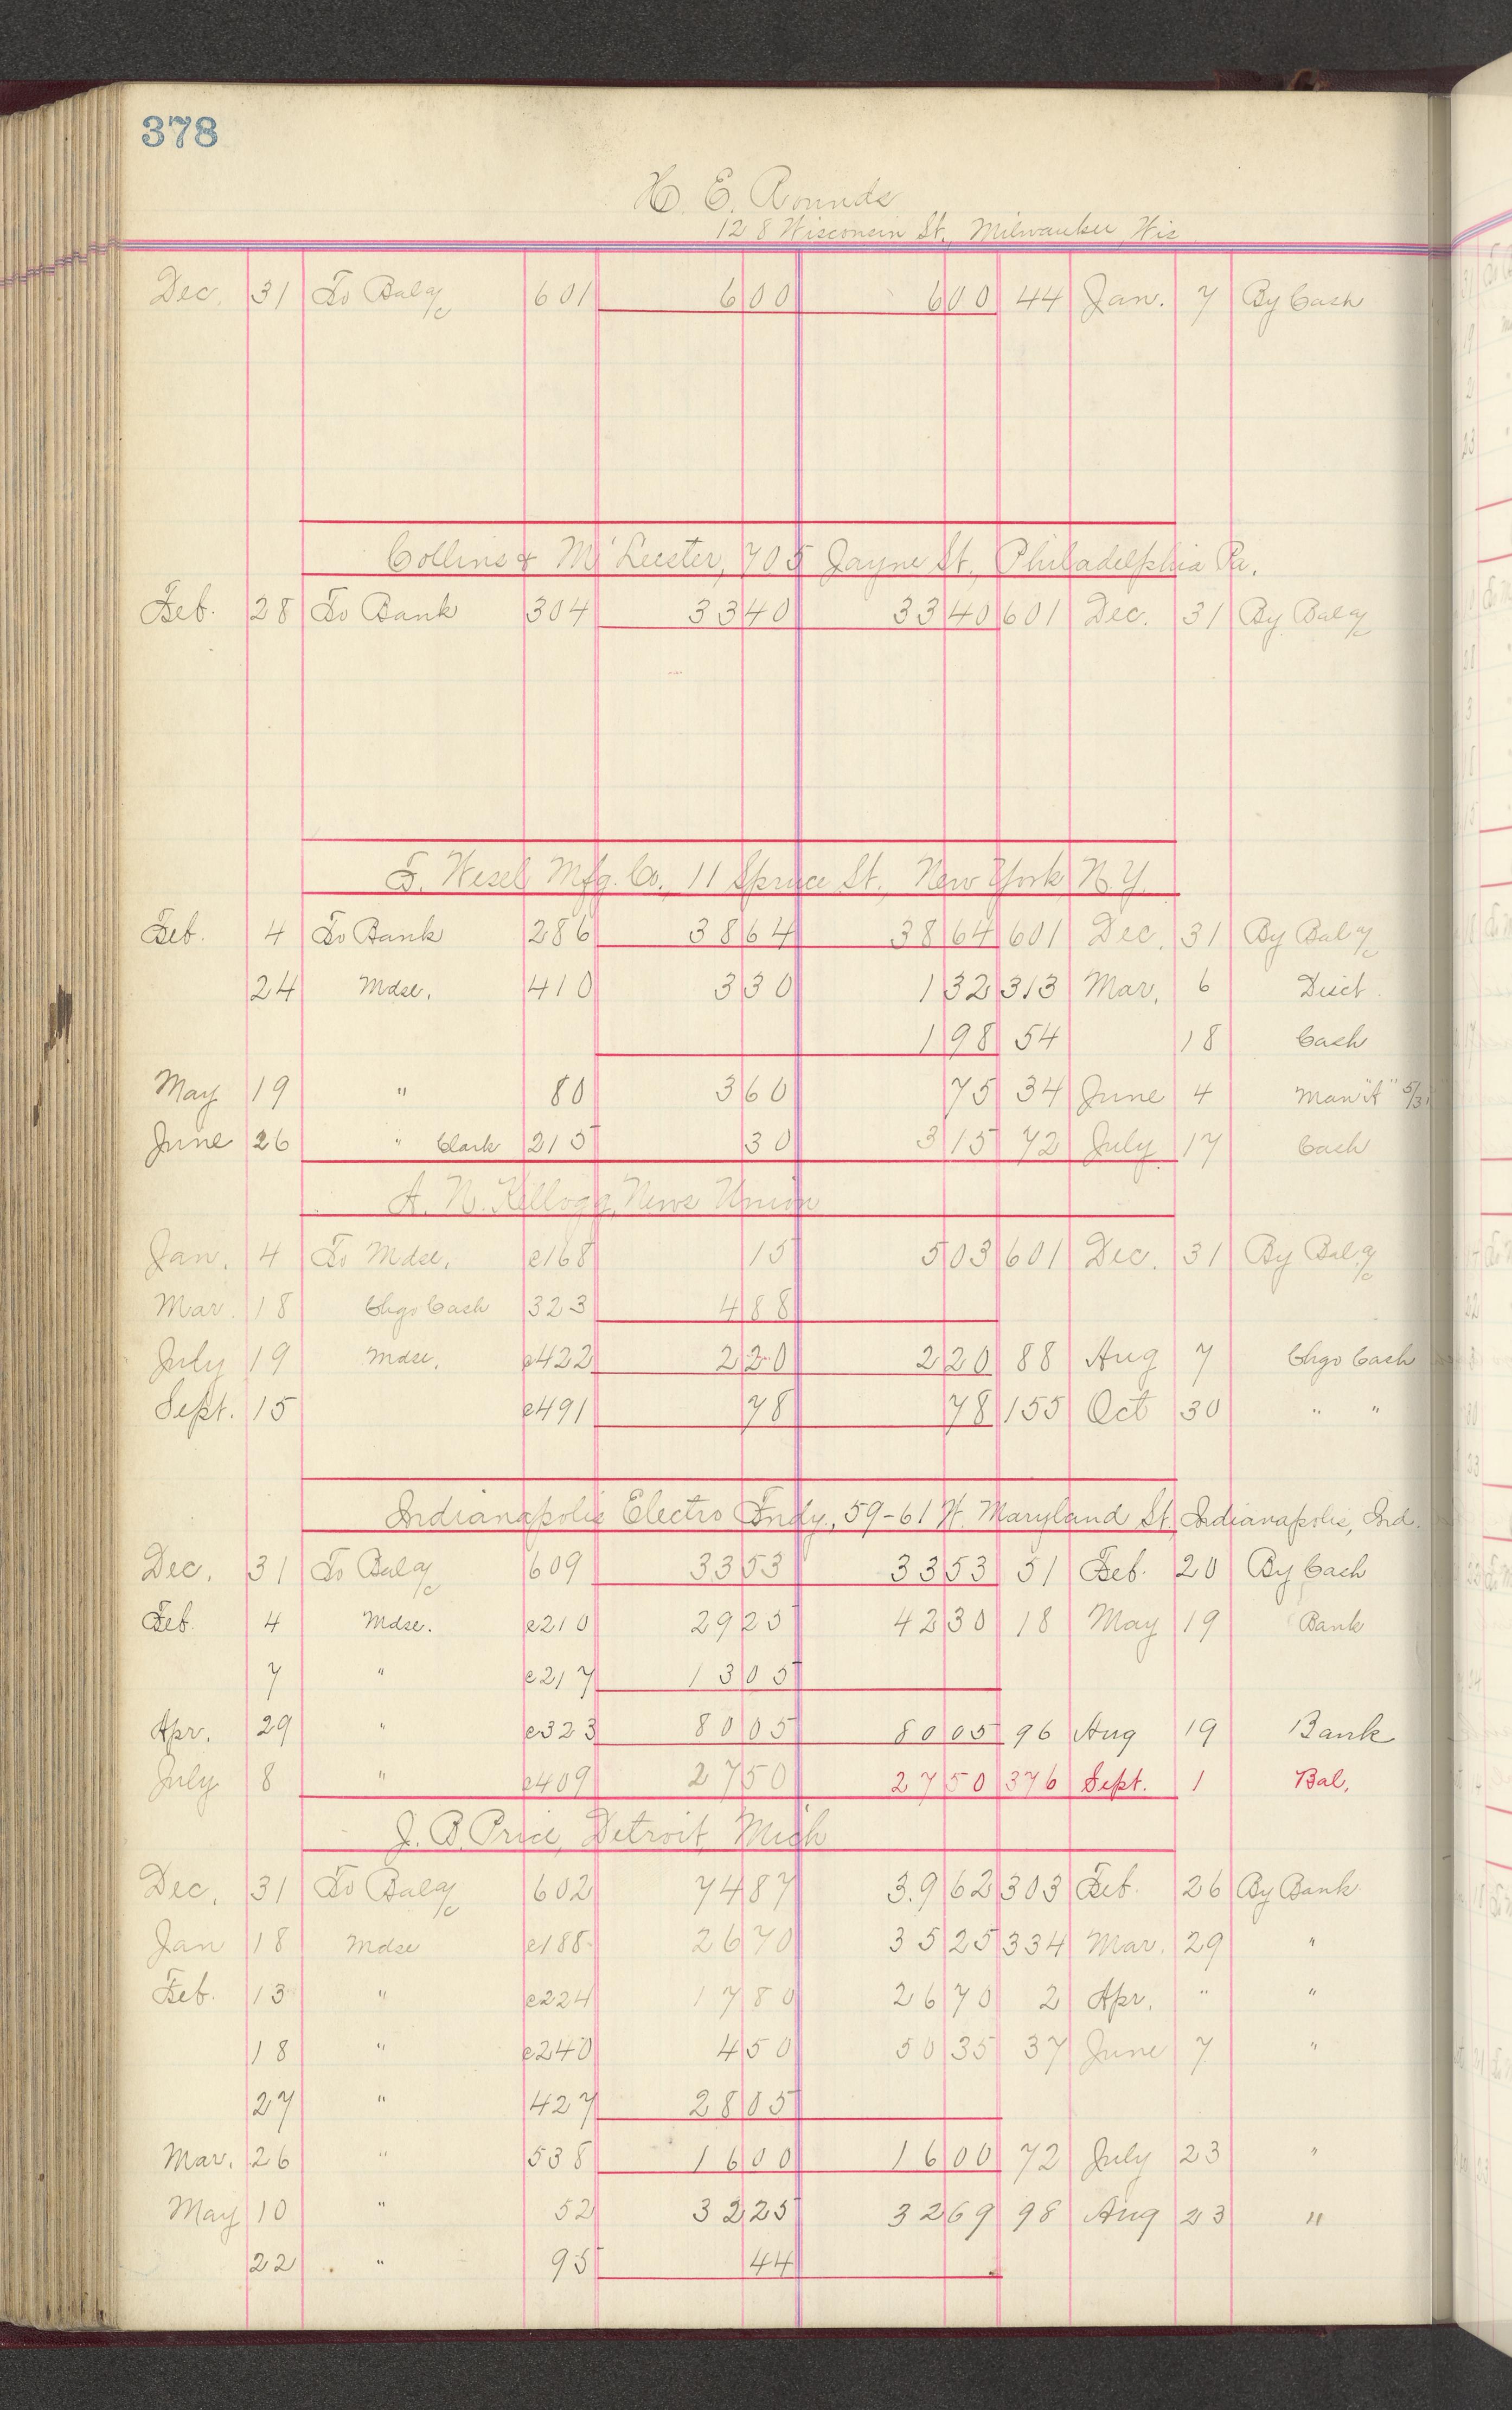 378
H. E. Rounds
128 Wisconsin St., Milwaukee Wis
Dec. 31 To Bal a/c 601 6 00 6 00 44 Jan. 7 By Cash
Collins & McLeester, 705 Jayne St., Philadelphia Pa.
Feb. 28 To Bank 304 33 40 33 40 601 Dec. 31 By Bal a/c
F. Wesel Mfg. Co., 11 Spruce St., New York N.Y.
Feb. 4 To Bank 286 38 64 38 64 601 Dec. 31 By Bal a/c
24 Mdse. 410 3 30 1 32 313 Mar. 6 Disct
1 98 54 18 Cash
May 19 " 80 3 60 75 34 June 4 Man "A" 5/31
June 26 " Clark 215 30 3 15 72 July 17 Cash
A. N. Kellogg News Union
Jan. 4 To Mdse. e168 15 5 03 601 Dec. 31 By Bal a/c
Mar. 18 Chgo Cash 323 4 88
July 19 Mdse. e422 2 20 2 20 88 Aug 7 Chgo Cash
Sept. 15 e491 78 78 155 Oct 30 " "
Indianapolis Electro Fndy., 59-61 W. Maryland St. Indianapolis, Ind.
Dec. 31 To Bal a/c 609 33 53 33 53 51 Feb. 20 By Cash
Feb. 4 Mdse. e210 29 25 42 30 18 May 19 Bank
7 " e217 13 05
Apr. 29 " e323 80 05 80 05 96 Aug 19 Bank
July 8 " e409 27 50 27 50 376 Sept. 1 Bal.
J. B. Price, Detroit Mich
Dec. 31 To Bal a/c 602 74 87 39 62 303 Feb. 26 By Bank
Jan 18 Mdse e188 26 70 35 25 334 Mar. 29 "
Feb. 13 " e224 17 80 26 70 2 Apr. " "
18 " e240 4 50 50 35 37 June 7 "
27 " 427 28 05
Mar. 26 " 538 16 00 16 00 72 July 23 "
May 10 " 52 32 25 32 69 98 Aug 23 "
22 " 95 44